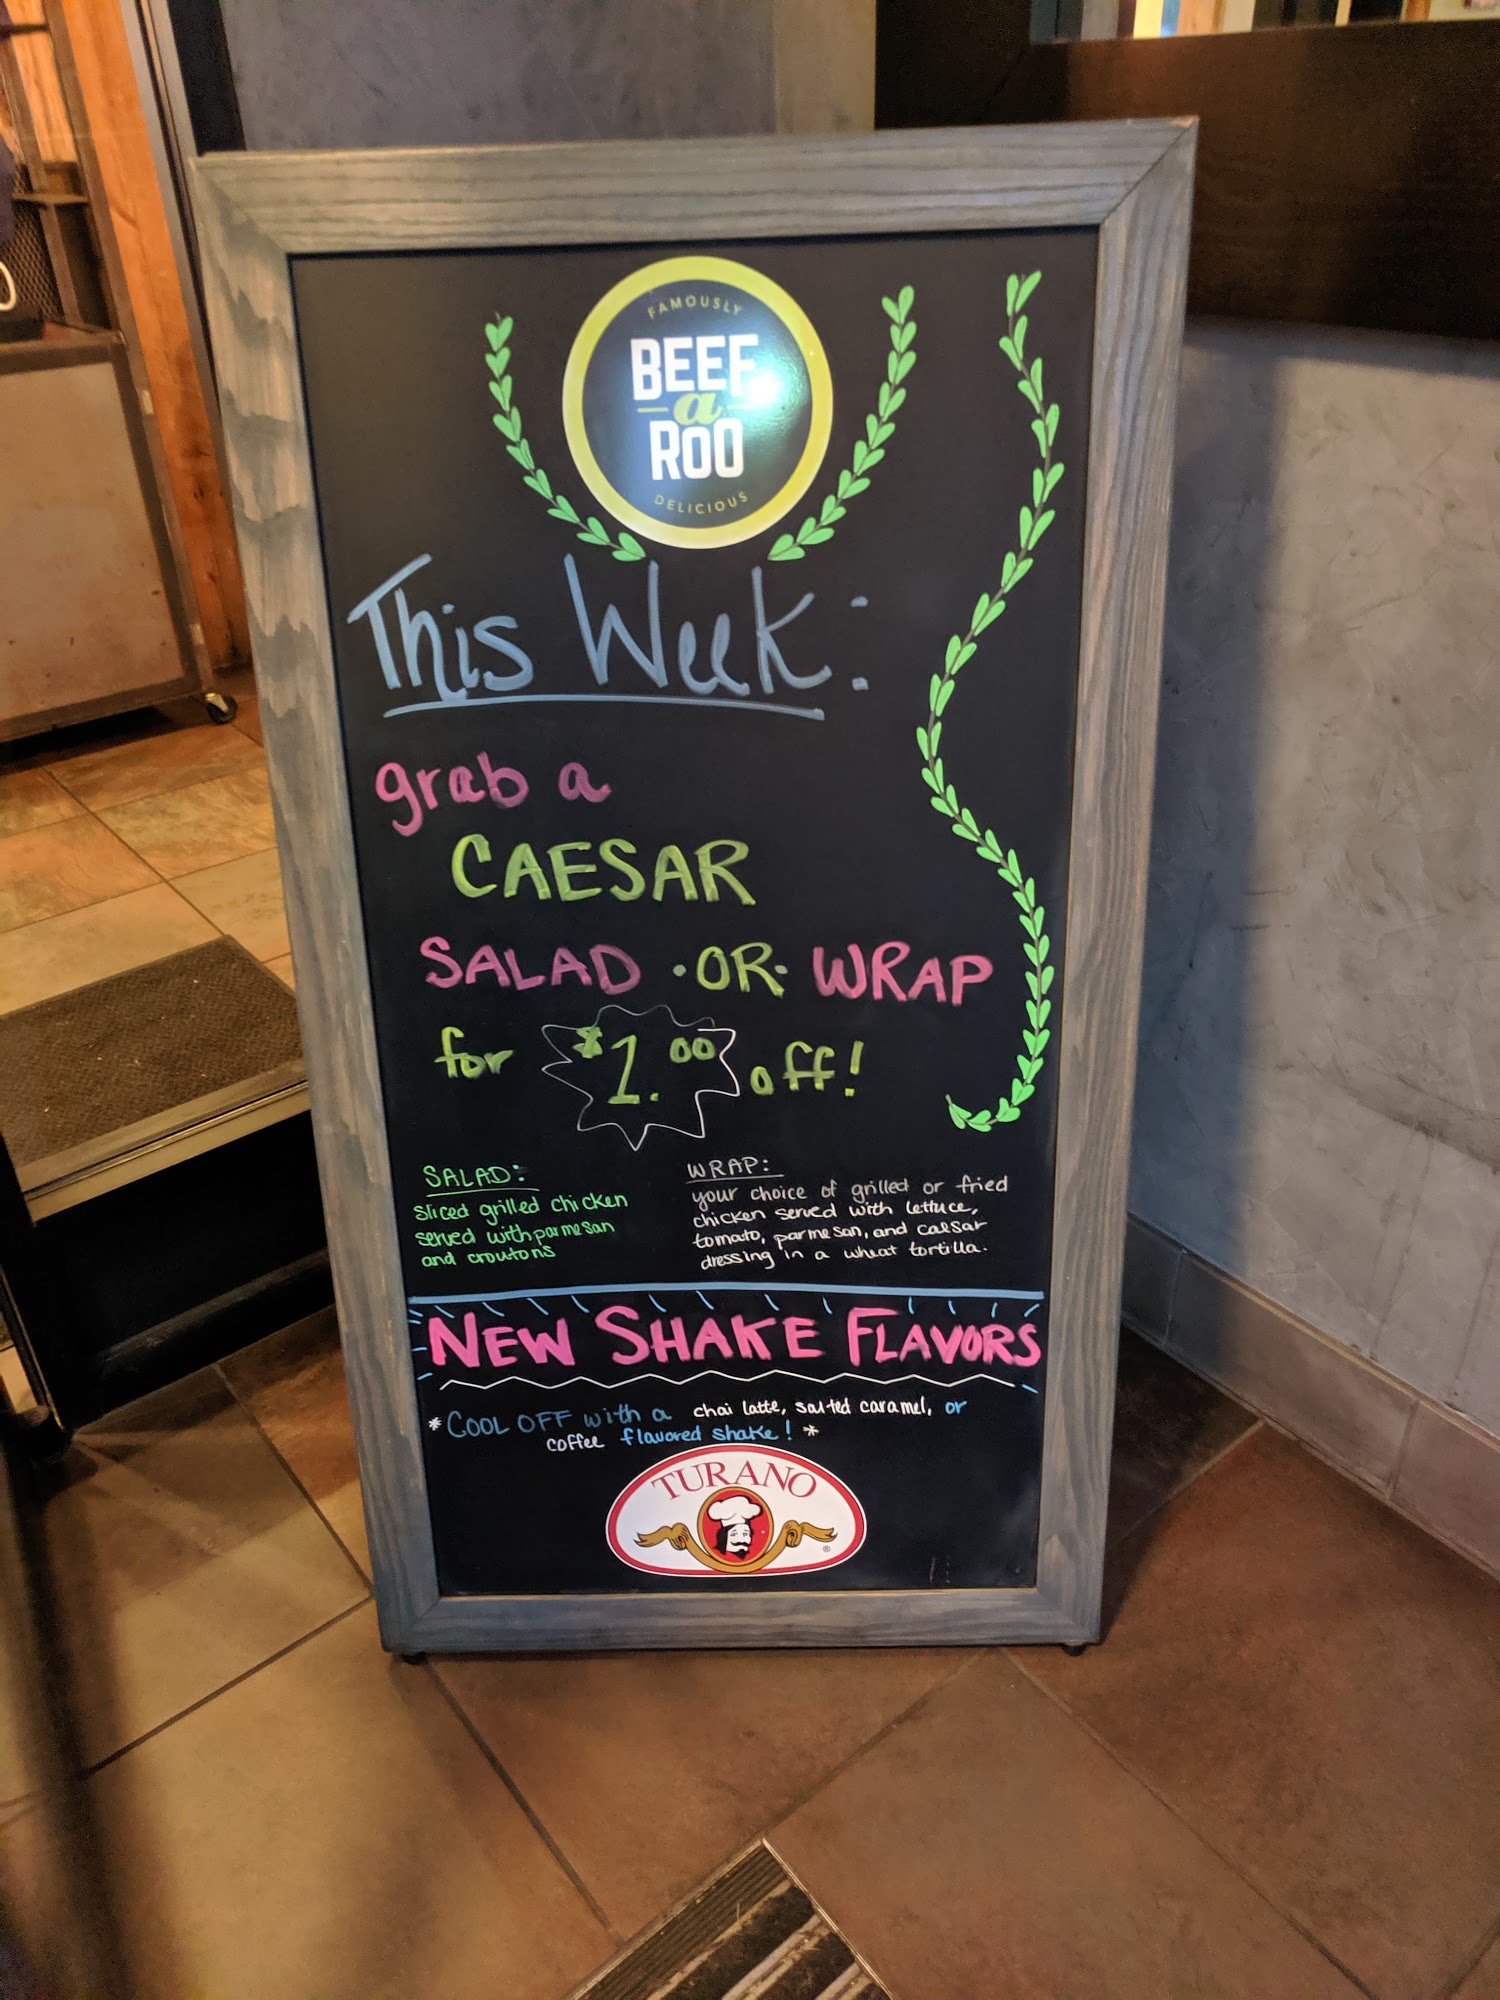 FAMOUSLY
BEEF
a
ROO
DELICIOUS
This Week:
grab a
CAESAR
SALAD ·OR· WRAP
for $1.00 off!
SALAD:
sliced grilled chicken
served with parmesan
and croutons
WRAP:
your choice of grilled or fried
chicken served with lettuce,
tomato, parmesan, and caesar
dressing in a wheat tortilla.
NEW SHAKE FLAVORS
*COOL OFF with a chai latte, salted caramel, or
coffee flavored shake! *
TURANO
®